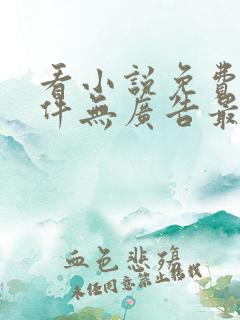 看小說免費
件無廣告最
血色悲殤
未经同意禁止转载